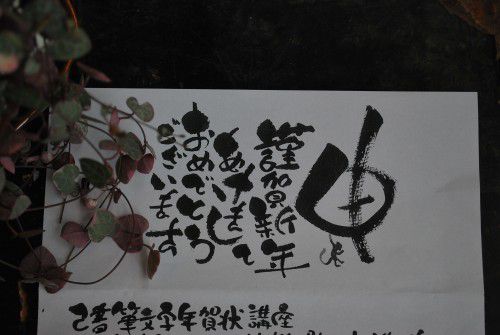 申
謹賀新年
あけまして
おめでとう
ございます
己書筆文字年賀状 講座